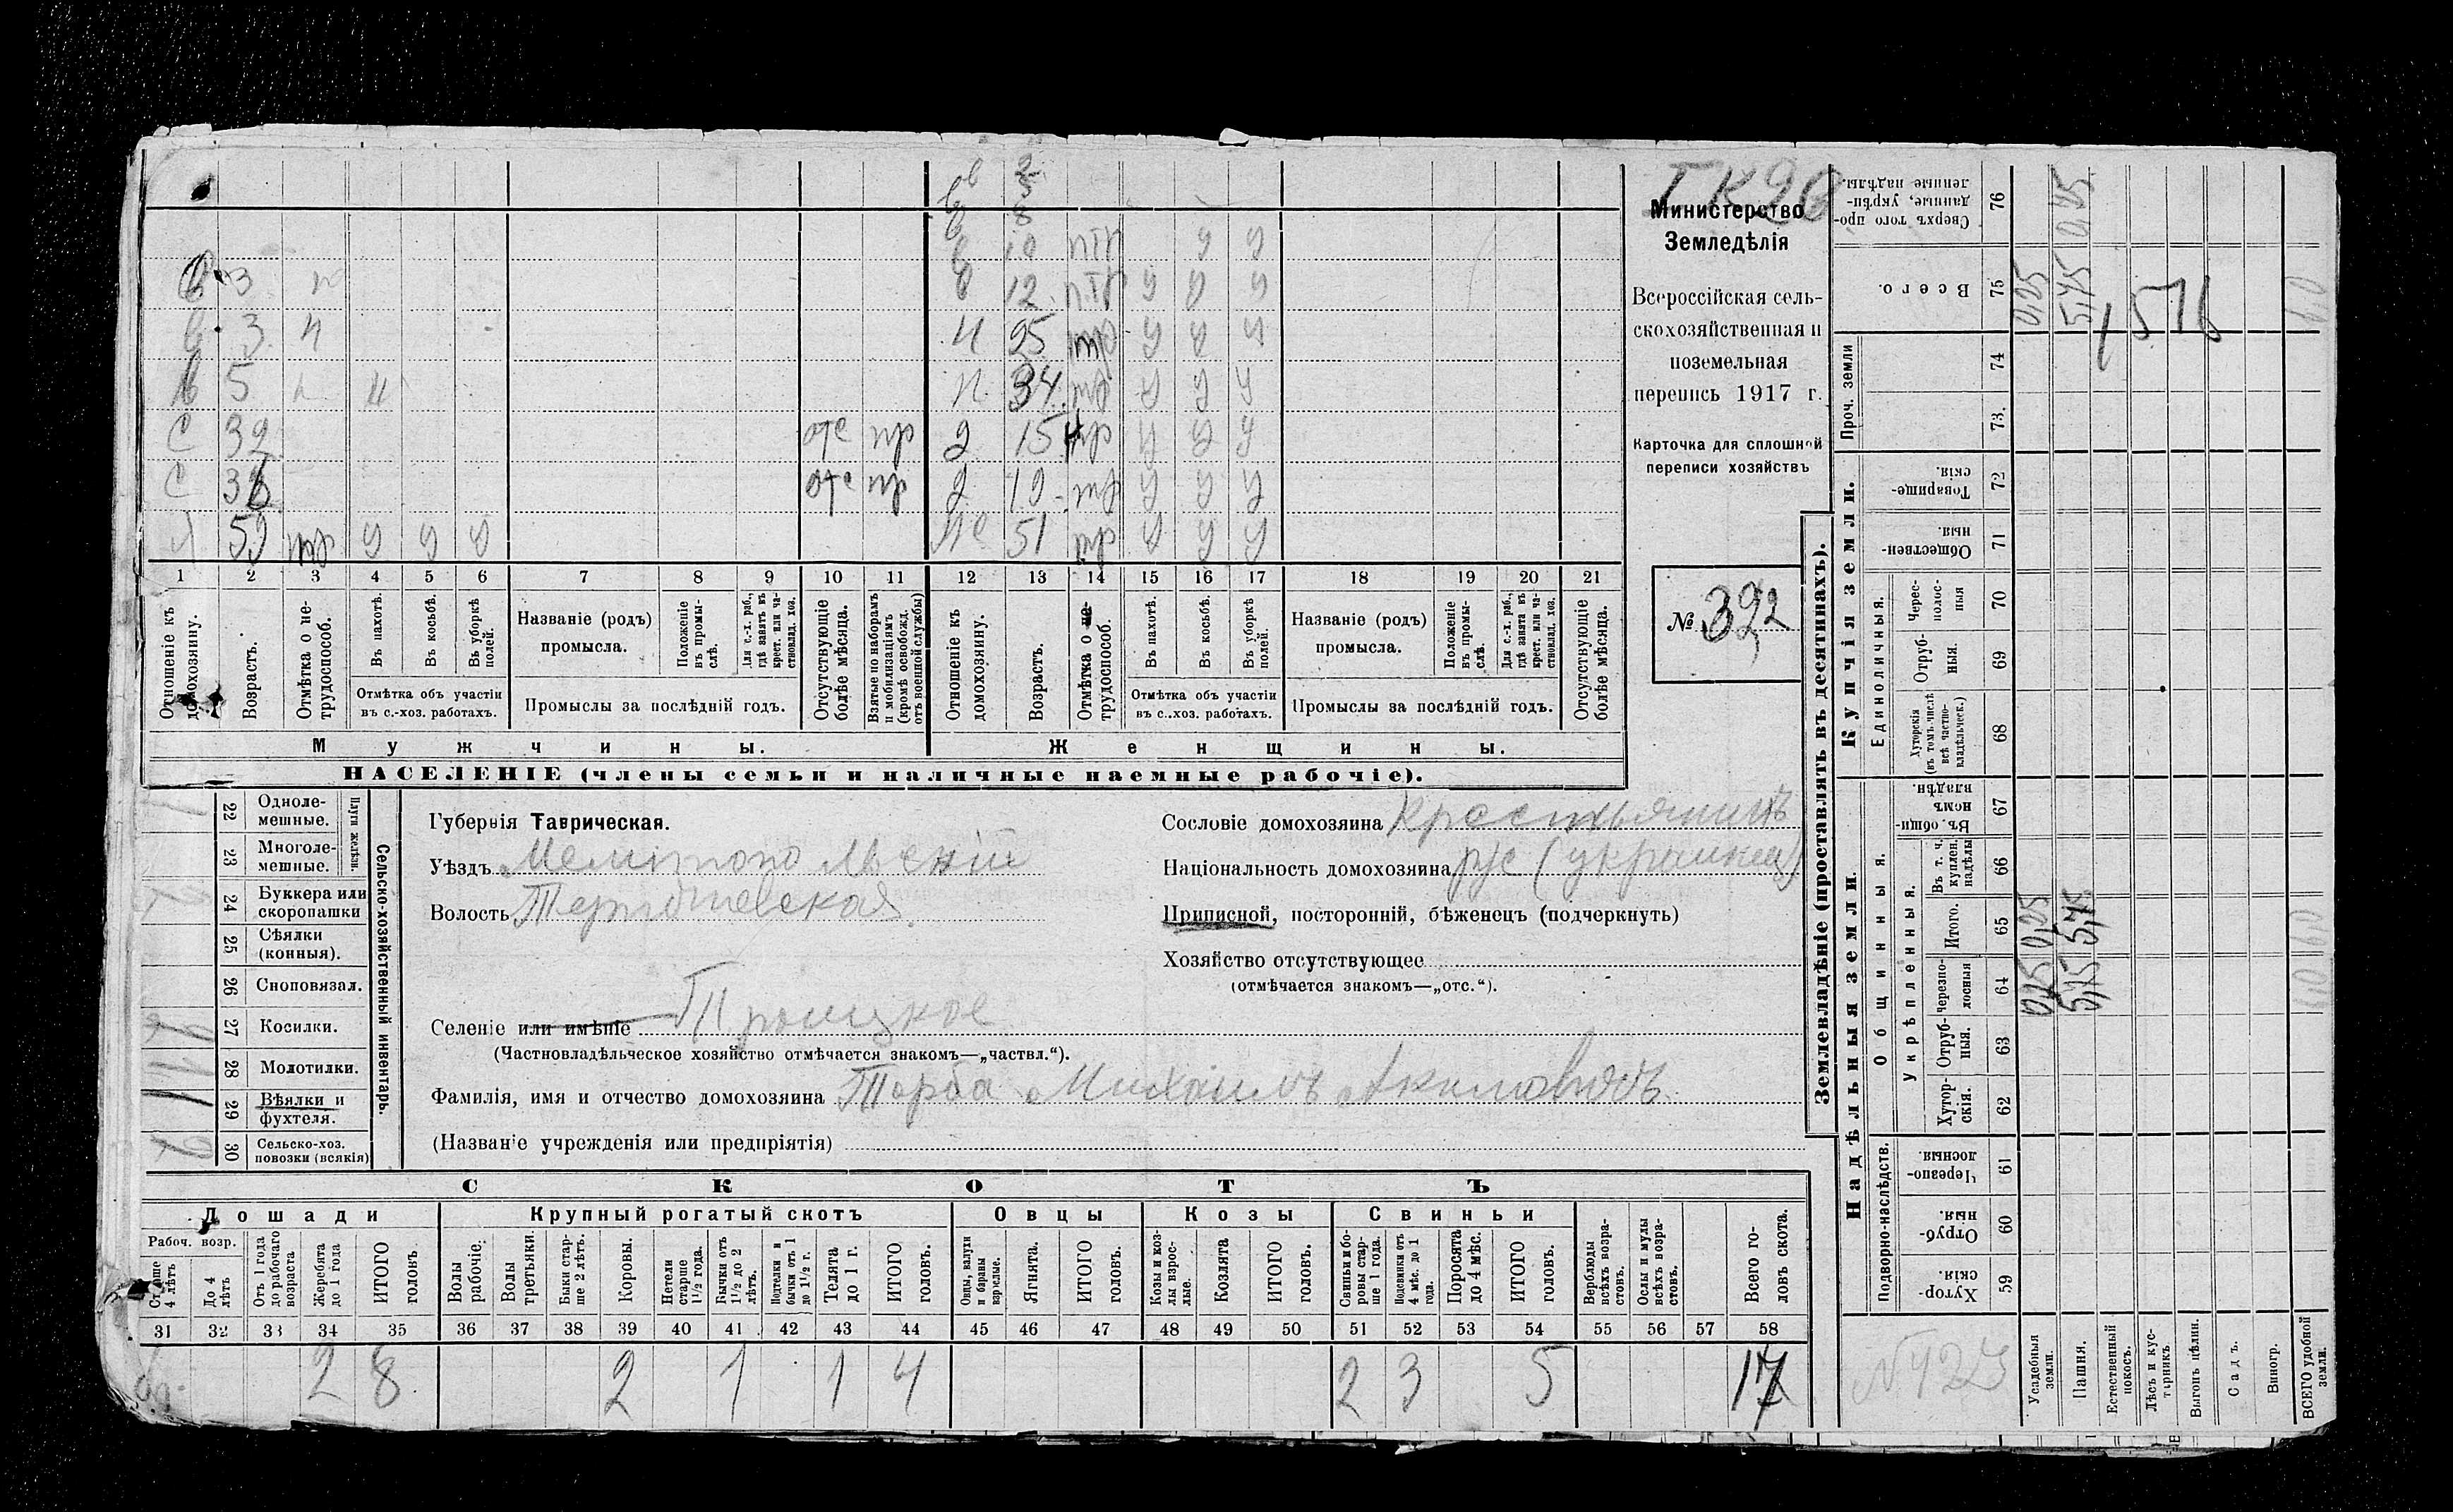 ГК96
Министерство
Земледѣлія
Всероссійская сель-
скохозяйственная и
поземельная
перепись 1917 г.
Карточка для сплошной
переписи хозяйствъ
№ 392
в 2
в 5
в 8
в 10 птр у у
в 3 н в 12 птр у у у
в 3 н н 25 тр у у у
в 5 н н н 34 тр у у у
С 32 отс пр д 15 нтр у у у
С 36 отс пр д 19 тр у у у
59 тр у у у 51 тр у у у
1 2 3 4 5 6 7 8 9 10 11 12 13 14 15 16 17 18 19 20 21
Отношеніе къ домохозяину.
Возрастъ.
Отмѣтка о не-трудоспособ.
Въ пахотѣ.
Въ косьбѣ.
Въ уборкѣ полей.
Отмѣтка объ участіи
въ с.-хоз. работахъ.
Названіе (родъ)
промысла.
Положеніе въ промы-слѣ.
Для с.-х. раб., гдѣ занятъ въ крест. или ча-стновлад. хоз.
Промыслы за послѣдній годъ.
Отсутствующіе болѣе мѣсяца.
Взятые по наборамъ и мобилизаціямъ (кромѣ освобожд. отъ военной службы)
Отношеніе къ домохозяину.
Возрастъ.
Отмѣтка о не-трудоспособ.
Въ пахотѣ.
Въ косьбѣ.
Въ уборкѣ полей.
Отмѣтка объ участіи
въ с.-хоз. работахъ.
Названіе (родъ)
промысла.
Положеніе въ промы-слѣ.
Для с.-х. раб., гдѣ занята въ крест. или ча-стновлад. хоз.
Промыслы за послѣдній годъ.
Отсутствующіе болѣе мѣсяца.
Мужчины.
Женщины.
НАСЕЛЕНІЕ (члены семьи и наличные наемные рабочіе).
22 Одноле-
мешные.
23 Многоле-
мешные.
Плуги желѣзн.
24 Буккера или
скоропашки
25 Сѣялки
(конныя).
26 Сноповязал.
27 Косилки.
28 Молотилки.
29 Вѣялки и
фухтеля.
30 Сельско-хоз.
повозки (всякія)
Сельско-хозяйственный инвентарь.
Губернія Таврическая.
Уѣздъ Мелитопольскій
Волость
Селеніе или имѣніе Троицкое
(Частновладѣльческое хозяйство отмѣчается знакомъ—„частвл.“).
Фамилія, имя и отчество домохозяина Торба Михаилъ Акимовичъ
(Названіе учрежденія или предпріятія)
Сословіе домохозяина Крестьянинъ
Національность домохозяина рус (украинец)
Приписной, посторонній, бѣженецъ (подчеркнуть)
Хозяйство отсутствующее
(отмѣчается знакомъ—„отс.“).
СКОТЪ
Лошади
Крупный рогатый скотъ
Овцы
Козы
Свиньи
Рабоч. возр.
Старше 4 лѣтъ
До 4 лѣтъ
Отъ 1 года до рабочаго возраста
Жеребята до 1 года
ИТОГО головъ.
Волы рабочіе.
Волы третьяки.
Быки стар-ше 2 лѣтъ.
Коровы.
Нетели старше 1½ года.
Бычки отъ 1½ до 2 лѣтъ.
Подтелки и бычки отъ 1 до 1½ г.
Телята до 1 г.
ИТОГО головъ.
Овцы, валухи и бараны взрослые.
Ягнята.
ИТОГО головъ.
Козы и коз-лы взрос-лые.
Козлята
ИТОГО головъ.
Свиньи и бо-ровы стар-ше 1 года.
Подсвинки отъ 4 мѣс. до 1 года.
Поросята до 4 мѣс.
ИТОГО головъ.
Верблюды всѣхъ возра-стовъ.
Ослы и мулы всѣхъ возра-стовъ.
Всего го-ловъ скота.
31 32 33 34 35 36 37 38 39 40 41 42 43 44 45 46 47 48 49 50 51 52 53 54 55 56 57 58
2 8 2 1 1 4 2 3 5 17
Землевладѣніе (проставлять въ десятинахъ).
Надѣльныя земли.
Купчія земли.
Проч. земли
Подворно-наслѣдств.
Общинныя.
Укрѣпленныя.
Единоличныя.
Хутор-скія. 59
Отруб-ныя. 60
Черезпо-лосныя. 61
Хутор-скія. 62
Отруб-ныя. 63
черезпо-лосныя 64
Итого. 65
Въ т. ч. куплен. надѣлы 66
Въ общи-номъ владѣн. 67
Хуторскія (въ томъ числѣ всѣ частно-владѣльческ.) 68
Отруб-ныя. 69
Черес-полос-ныя 70
Обществен-ныя. 71
Товарище-скія. 72
73.
74
Всего. 75
Сверхъ того про-данные, укрѣп-ленные надѣлы. 76
Усадебныя земли. 0,25 0,25 0,25
Пашня. 5,75 5,75 5,75
Естественный покосъ.
Лѣсъ и кус-тарникъ.
Выгонъ цѣлин.
Садъ.
Виногр.
ВСЕГО удобной земли. 6,0 6,0 6,0
№ 423